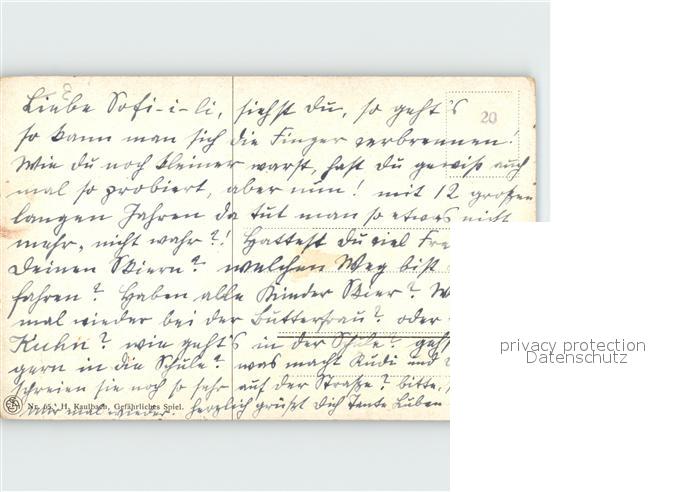 Liebe Sofi-i-li, siehst Du, so geht's
so kann man sich die Finger verbrennen!
Wie Du noch kleiner warst, hast Du gewiß auch
mal so probiert, aber nun! mit 12 großen
langen Jahren da tut man so etwas nicht
mehr, nicht wahr?! Hattest Du viel Fre
Deinen Skiern? welchen Weg bist
fahren? Haben alle Kinder Skier? W
mal wieder bei der Butterfrau? oder
Kuhn? wie geht's in der Schule? gehst
gern in die Schule? was macht Rudi und
schreien sie noch so sehr auf der Straße? bitte,
mir mal wieder. herzlich grüßt Dich Tante Luben
20
Nr. 65. H. Kaulbach, Gefährliches Spiel.
privacy protection
Datenschutz